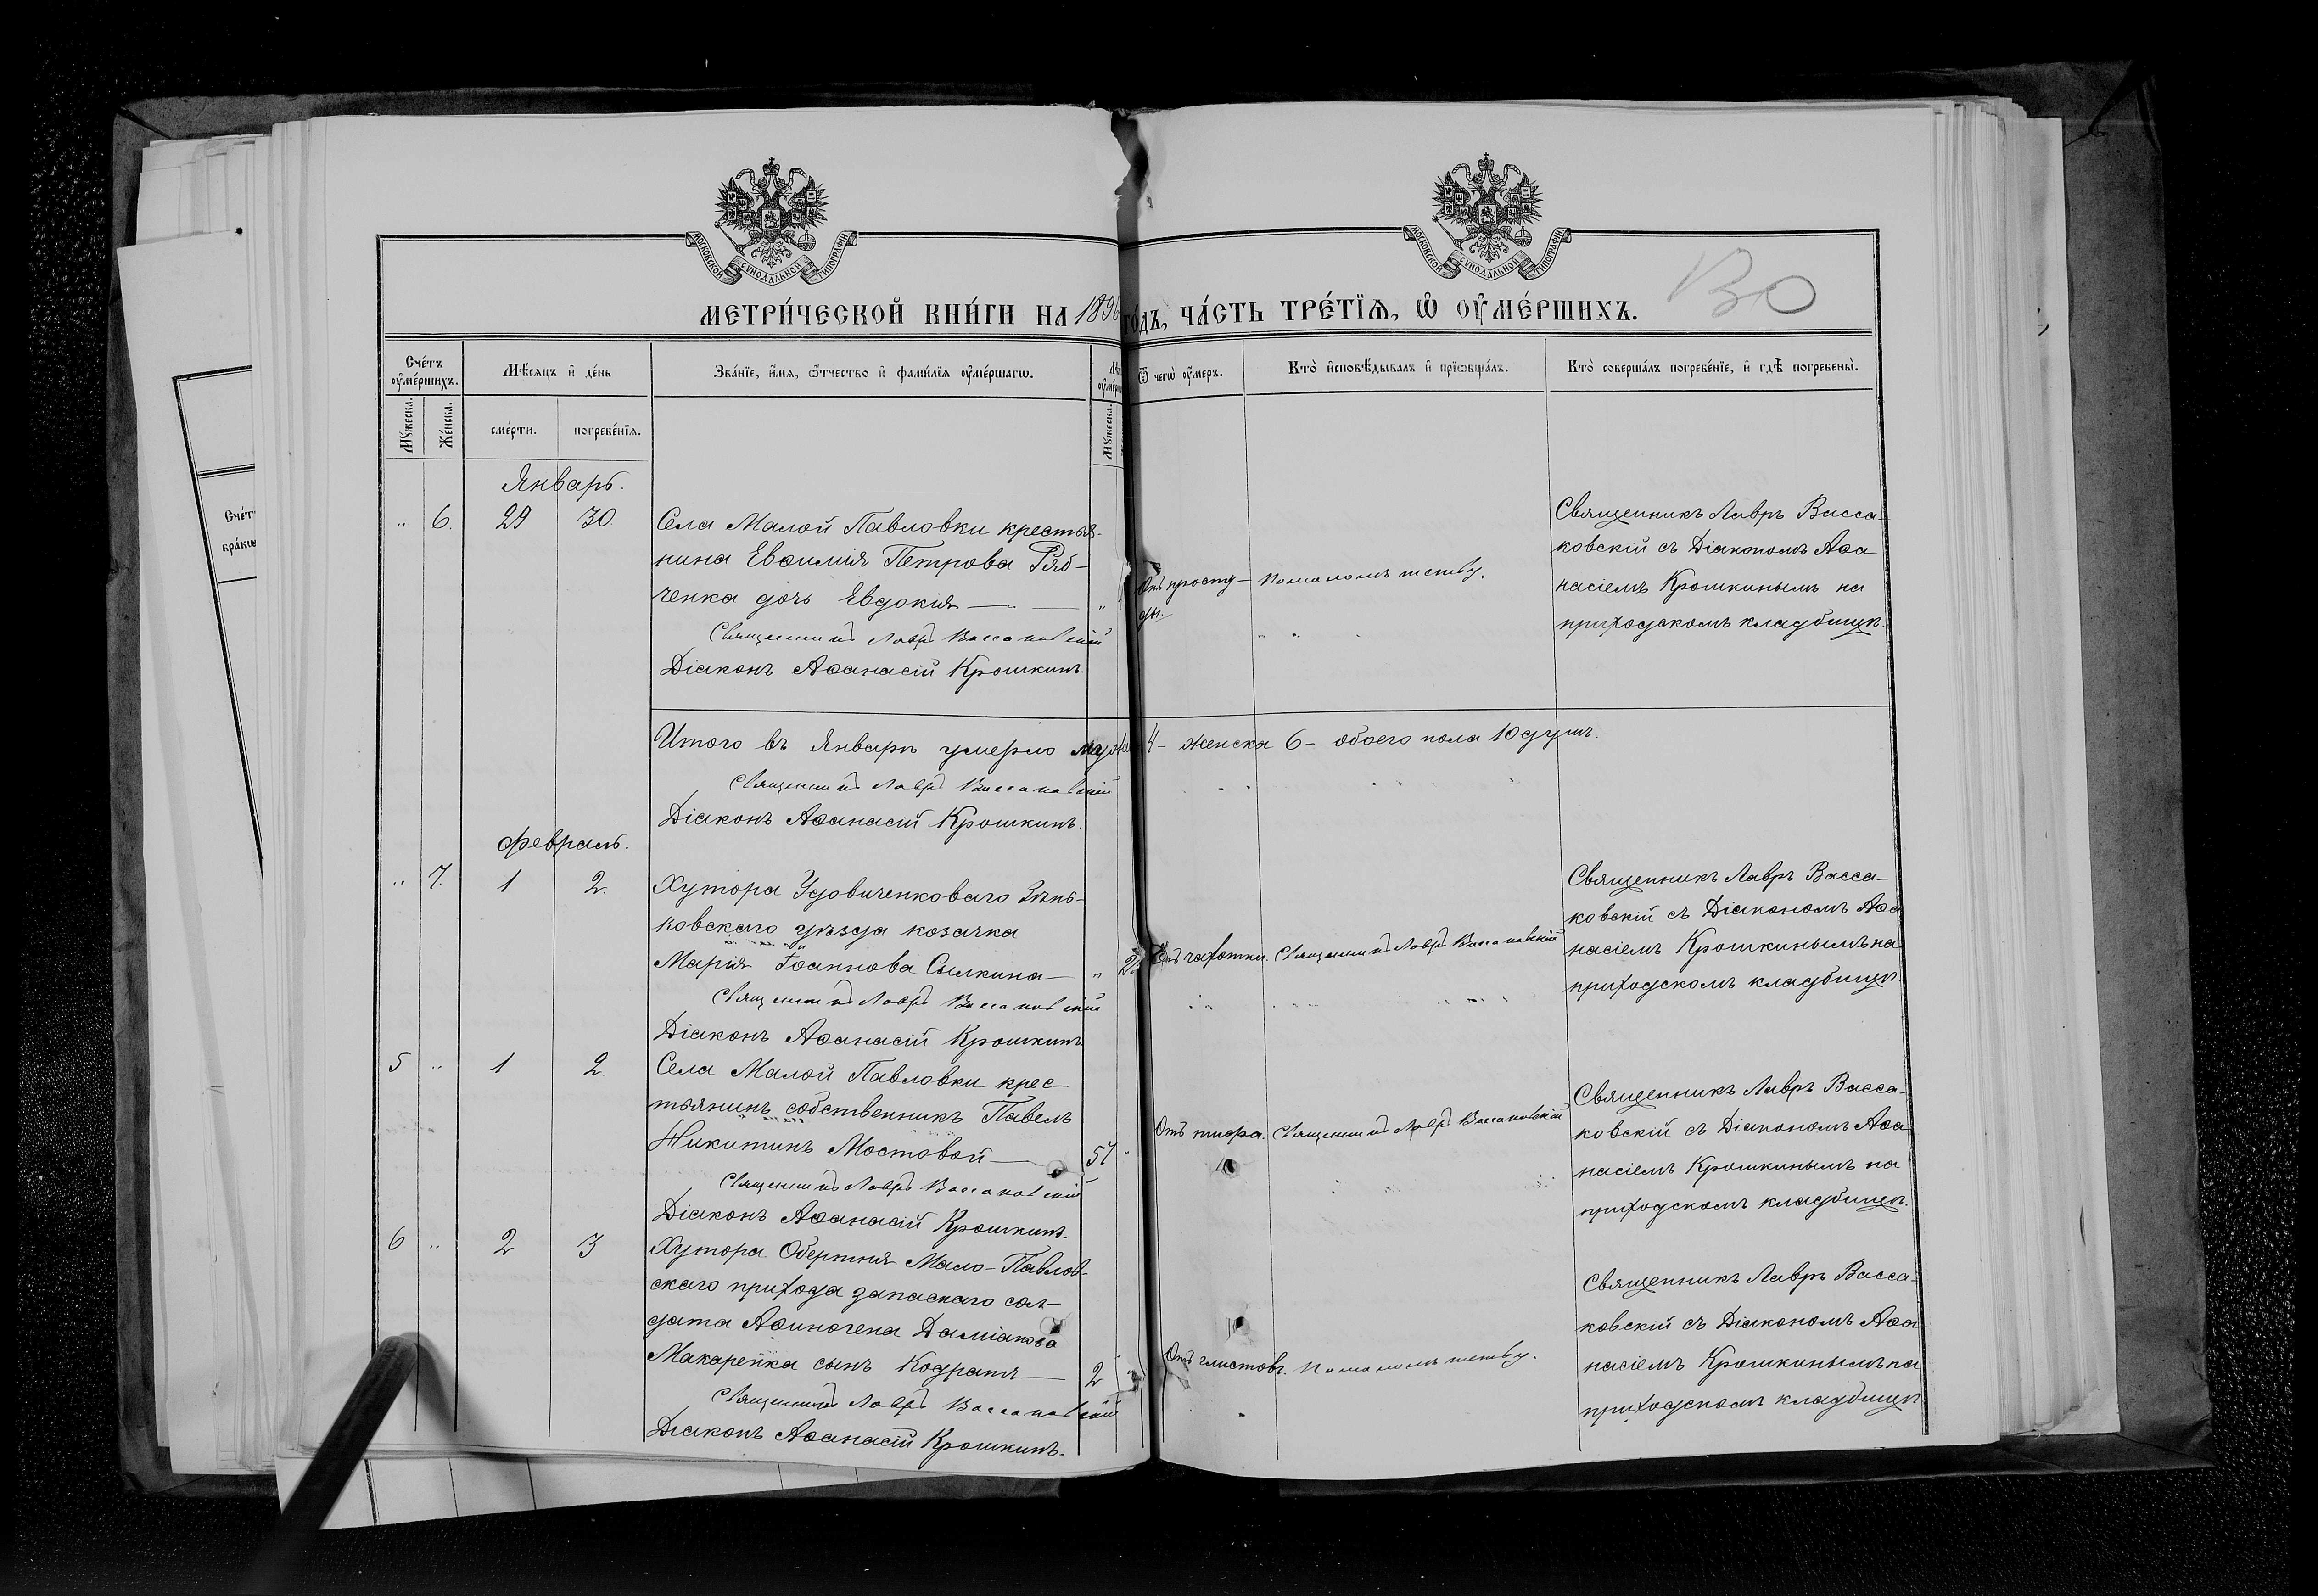 МОСКОВСКОЙ СУНОДАЛЬНОЙ ТИПОГРАФІИ
МОСКОВСКОЙ СУНОДАЛЬНОЙ ТИПОГРАФІИ
МЕТРИ́ЧЕСКОЙ КНИ́ГИ НА 1896 го́дъ, ЧА́СТЬ ТРЕ́ТЇѦ, Ѡ҆ ОУ҆МЕ́РШИХЪ.
Сче́тъ оу҆ме́ршихъ.
Мѣ́сяцъ и҆ де́нь
Зва́нїе, и҆́мя, ѻ҆́тчество и҆ фами́лїя оу҆ме́ршагѡ.
Ѿ чегѡ̀ оу҆́меръ.
Кто̀ и҆сповѣ́дывалъ и҆ прїѡбща́лъ.
Кто̀ соверша́лъ погребе́нїе, и҆ гдѣ̀ погребены̀.
Мꙋ́жеска.
Же́нска.
сме́рти.
погребе́нїя.
Мꙋ́жеска.
Сче́т
бра́кѡ
Январь.
" 6. 29 30.
Села Малой Павловки крестья-
нина Евѳимія Петрова Ряб-
ченка дочь Евдокія
Священникъ Лавръ Вассаковскій
Діаконъ Аѳанасій Крошкинъ.
Отъ просту-
ды.
Священникъ Лавръ Васса-
ковскій съ Діакономъ Аѳа
насіемъ Крошкинымъ на
приходскомъ кладбищѣ.
Итого въ Январѣ умерло муж 4 - женска 6 - обоего пола 10 душъ.
Священникъ Лавръ Вассаковскій
Діаконъ Аѳанасій Крошкинъ.
Февраль.
" 7. 1 2.
Хутора Удовиченковаго Зѣнь-
ковскаго уѣзда козачка
Марія Іоаннова Сылкина
Священникъ Лавръ Вассаковскій
Діаконъ Аѳанасій Крошкинъ
Отъ чахотки.
Священникъ Лавръ Вассаковскій
Священникъ Лавръ Васса-
ковскій съ Діакономъ Аѳа
насіемъ Крошкинымъ на
приходскомъ кладбищѣ
5 " 1 2.
Села Малой Павловки крес-
тьянинъ собственникъ Павелъ
Никитинъ Мостовой 57
Священникъ Лавръ Вассаковскій
Діаконъ Аѳанасій Крошкинъ.
Отъ тифа.
Священникъ Лавръ Вассаковскій
Священникъ Лавръ Васса-
ковскій съ Діакономъ Аѳа
насіемъ Крошкинымъ на
приходскомъ кладбищѣ.
6 " 2 3
Хутора Обертня Мало-Павлов-
скаго прихода запаснаго сол-
дата Аѳиногена Даміанова
Макаренка сынъ Кодратъ 2
Священникъ Лавръ Вассаковскій
Діаконъ Аѳанасій Крошкинъ.
Отъ глистовъ.
Священникъ Лавръ Васса-
ковскій съ Діакономъ Аѳа-
насіемъ Крошкинымъ на
приходскомъ кладбищѣ